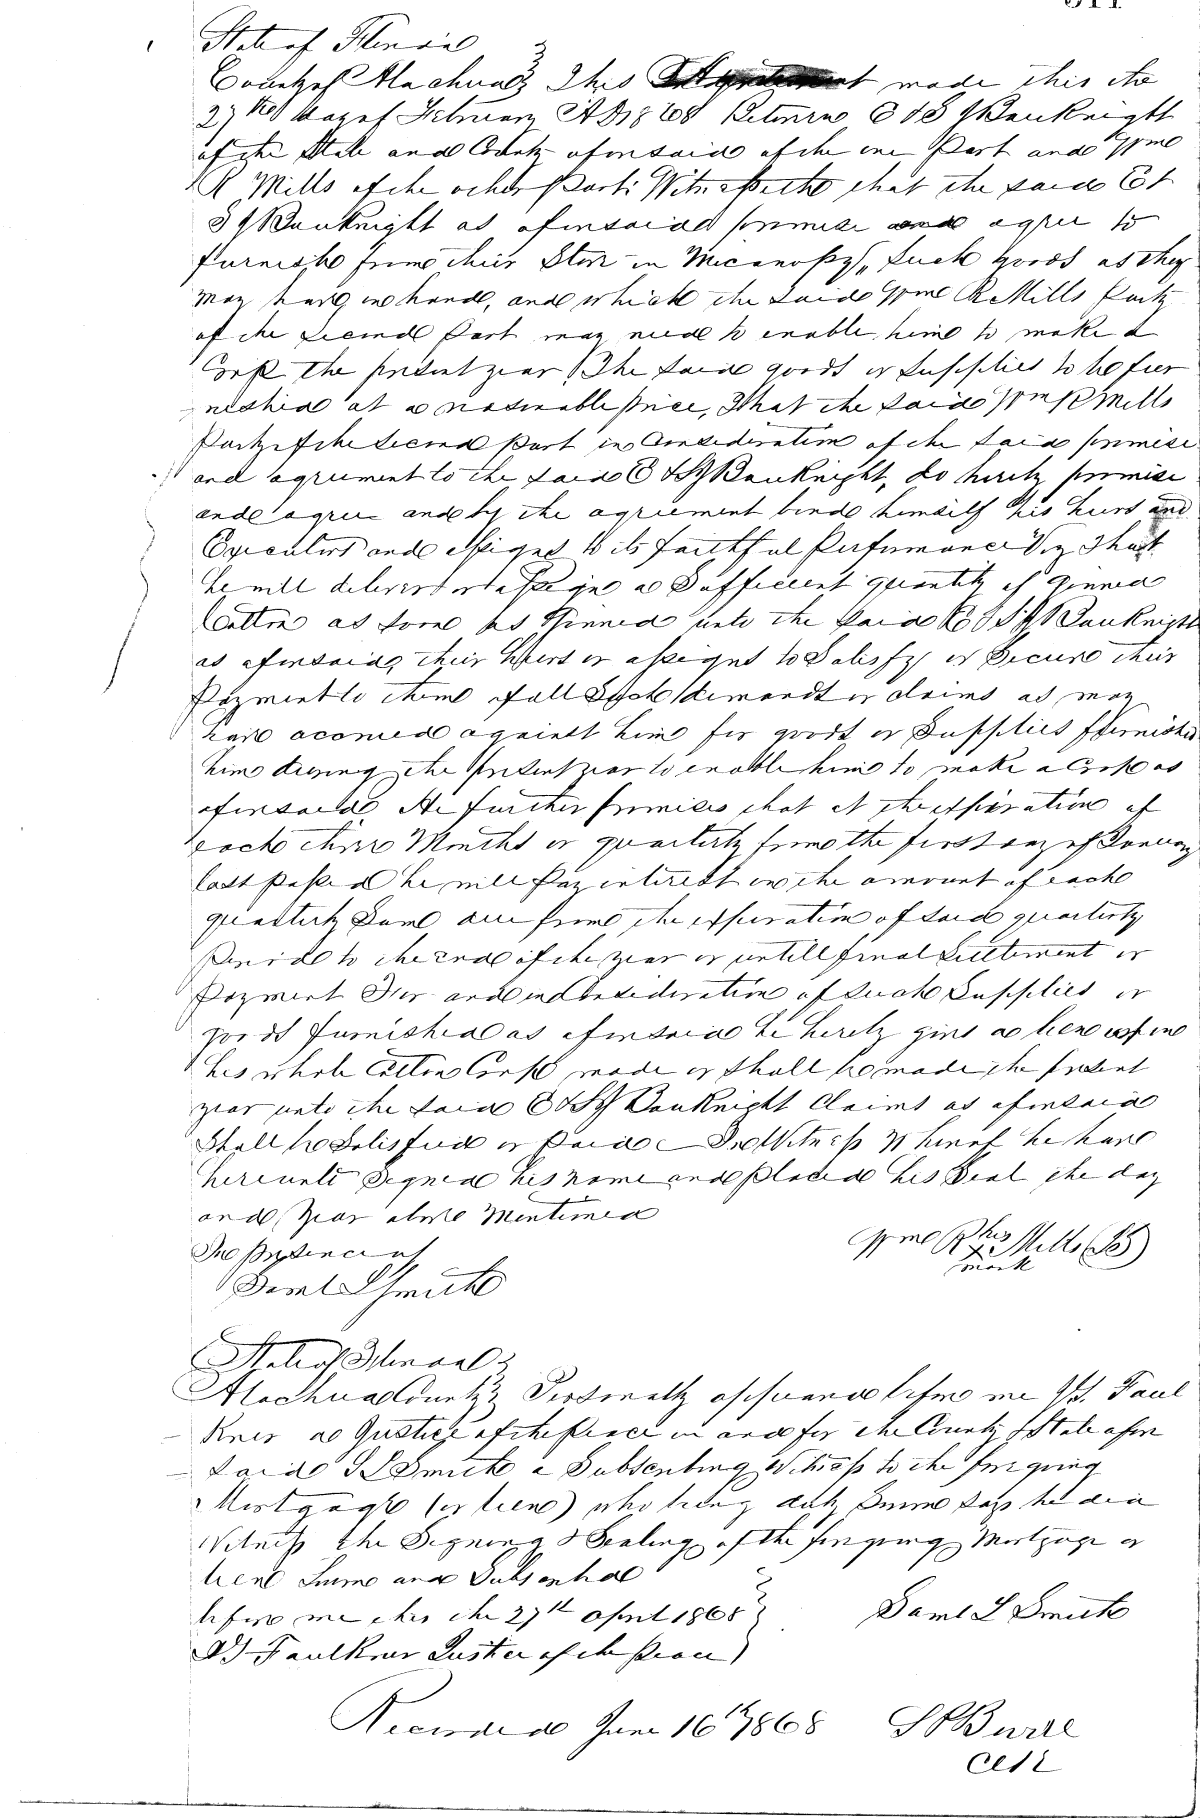 State of Florida
County of Alachua This Agreement made this the
27th day of February AD 1868 Between E & S J Bauknight
of the State and County aforesaid of the one Part and Wm
R Mills of the other Part: Witnesseth that the said E &
S J Bauknight as aforesaid promise and agree to
furnish from their Store in Micanopy, Such goods as they
may have on hand, and which the said Wm R Mills Party
of the Second Part may need to enable him to make a
Crop the present year, The said goods or supplies to be fur
nished at a reasonable price, That the said Wm R Mills
Party of the Second Part in Consideration of the said promise
and agreement to the said E & S J Bauknight, do hereby promise
and agree and by the agreement binds himself his heirs and
Executors and assigns to its faithful Performance Viz That
he will deliver or assign a Sufficient quantity of Ginned
Cotton as soon as Ginned unto the said E & S J Bauknight
as aforesaid, their heirs or assigns to Satisfy or Secure their
Payment to them of all Such demands or claims as may
have accrued against him for goods or Supplies furnished
him during the present year to enable him to make a Crop as
aforesaid. He further promises that at the expiration of
each three Months or quarterly from the first day of January
last passed he will pay interest on the amount of each
quarterly Sum due from the expiration of said quarterly
Period to the end of the year or untill final Settlement or
Payment For and in Consideration of such Supplies or
goods furnished as aforesaid he hereby give a lien upon
his whole Cotton Crop made or shall be made the present
year unto the said E & S J Bauknight Claims as aforesaid
Shall be Satisfied or paid In Witness Whereof he have
hereunto Signed his name and placed his Seal the day
and Year above Mentioned
In presence of
Saml L Smith
Wm R his x mark Mills (LS)
State of Florida
Alachua County Personally appeared before me W J. Faul
kner a Justice of the Peace in and for the County & State afore
said S L Smith a Subscribing Witness to the foregoing
Mortgage (or lien) who being duly Sworn says he did
Witness the Signing & Sealing of the foregoing Mortgage or
lien Sworn and Subscribed
before me this the 27th April 1868
Saml L Smith
W J Faulkner Justice of the Peace
Recorded June 16th 1868